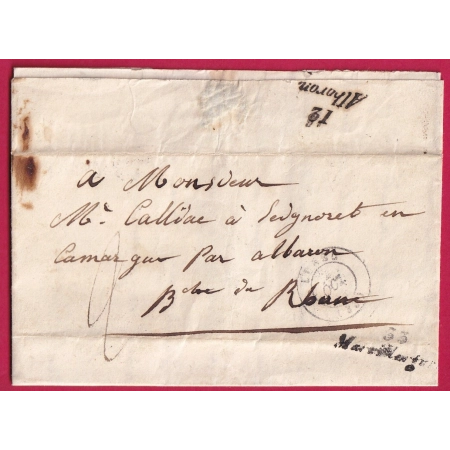 12
Albaron
a Monsieur
Mr. Callvac à Seignoret en
Camargue par albaron
Bche du Rhône